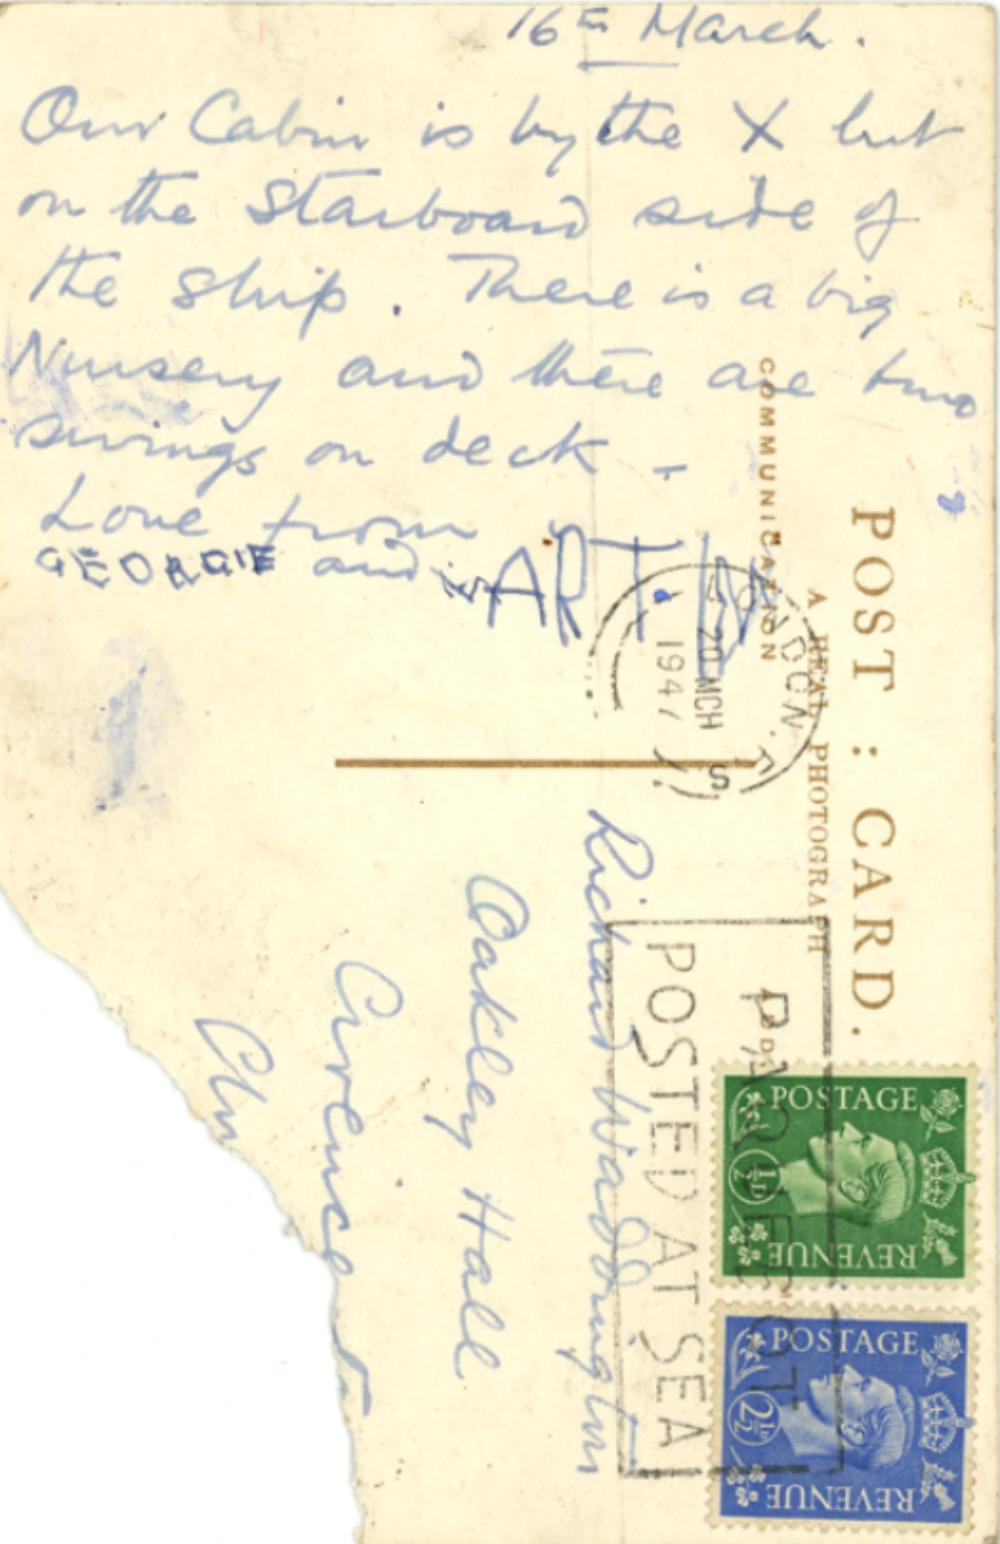 16th March.
Our Cabin is by the X but
on the Starboard side of
the Ship. There is a big
Nursery and there are two
swings on deck.
Love from
GEORGIE and
POST : CARD.
A REAL PHOTOGRAPH
COMMUNICATION
LONDON. F.S
20 MCH
1947
PAQUEBOT
POSTED AT SEA
Richard Waddington
Oakley Hall
Cirencest
POSTAGE
½D
REVENUE
POSTAGE
2½D
REVENUE